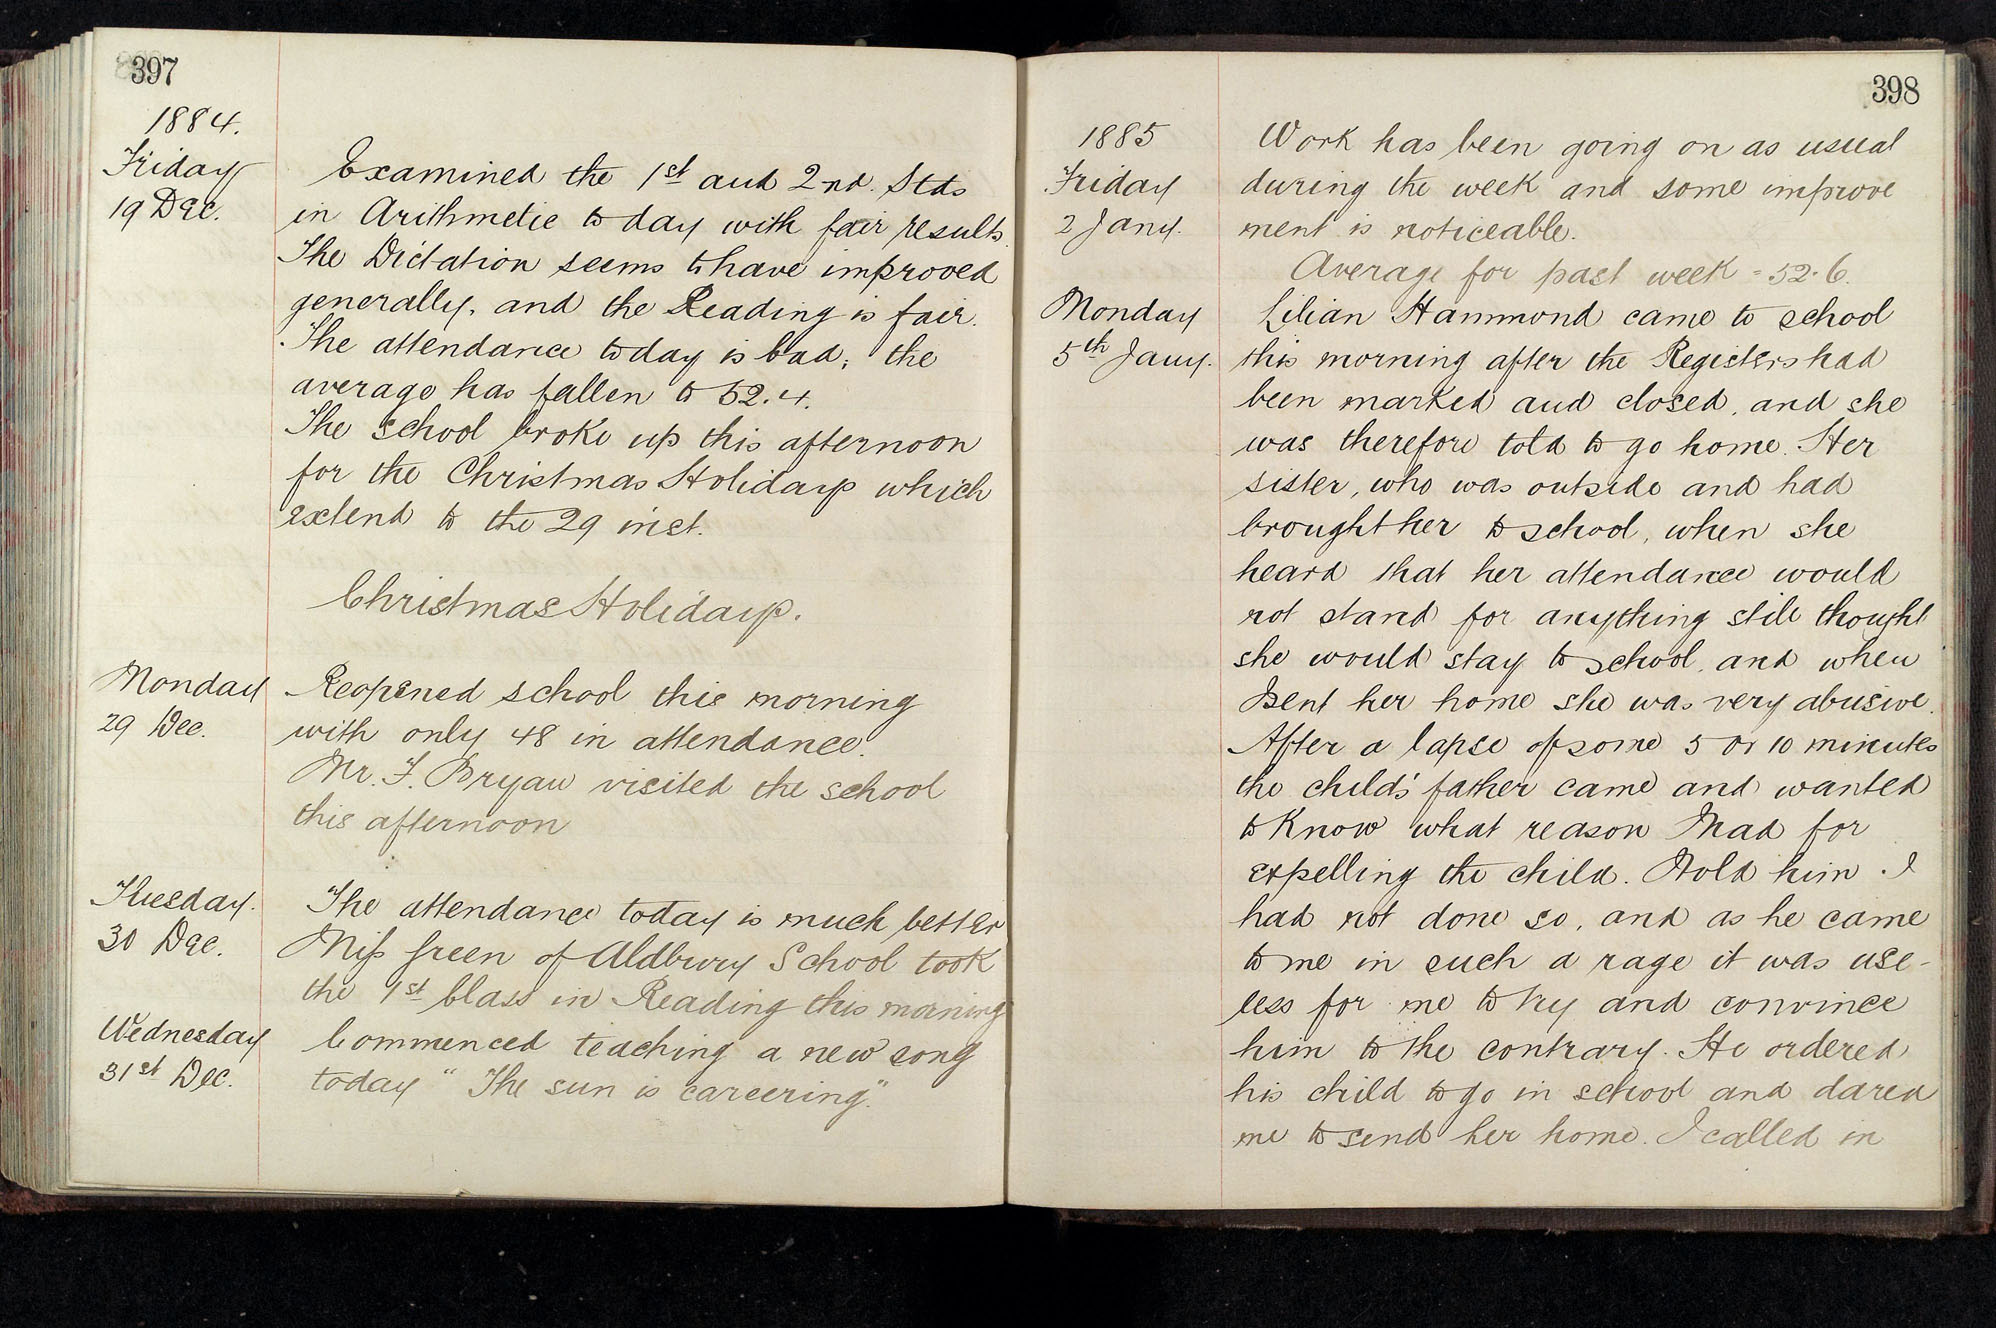 397
1884.
Friday
19 Dec.
Examined the 1st and 2nd. Stds
in Arithmetic to day with fair results.
The Dictation seems to have improved
generally, and the Reading is fair.
The attendance today is bad; the
average has fallen to 52.4.
The school broke up this afternoon
for the Christmas Holidays which
extend to the 29 inst.
Christmas Holidays.
Monday
29 Dec.
Reopened school this morning
with only 48 in attendance.
Mr. F. Bryan visited the school
this afternoon
Tuesday.
30 Dec.
The attendance today is much better
Miss Green of Aldbury School took
the 1st Class in Reading this morning
Wednesday
31st Dec.
Commenced teaching a new song
today "The sun is careering."
398
1885
Friday
2 Jany.
Work has been going on as usual
during the week and some improve
ment is noticeable.
Average for past week = 52.6.
Monday
5th Jany.
Lilian Hammond came to school
this morning after the Registers had
been marked and closed, and she
was therefore told to go home. Her
sister, who was outside and had
brought her to school, when she
heard that her attendance would
not stand for anything still thought
she would stay to school, and when
I sent her home she was very abusive.
After a lapse of some 5 or 10 minutes
the child's father came and wanted
to know what reason I had for
expelling the child. I told him I
had not done so, and as he came
to me in such a rage it was use-
less for me to try and convince
him to the contrary. He ordered
his child to go in school and dared
me to send her home. I called in